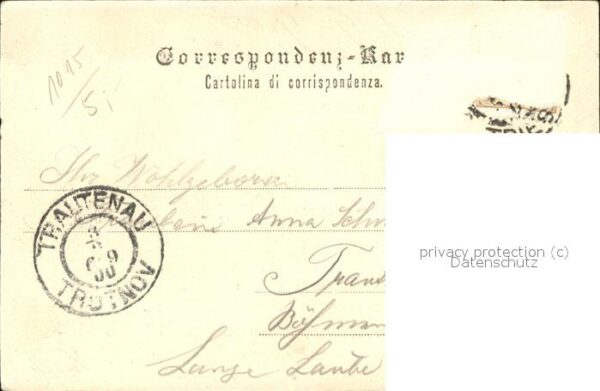 Correspondenz-Kar
Cartolina di corrispondenza.
1015
5
Ihr Wohlgeboren
Anna Schw
Traut
Böhmen
Lange Laube
TRAUTENAU
9
00
TRUTNOV
privacy protection (c)
Datenschutz